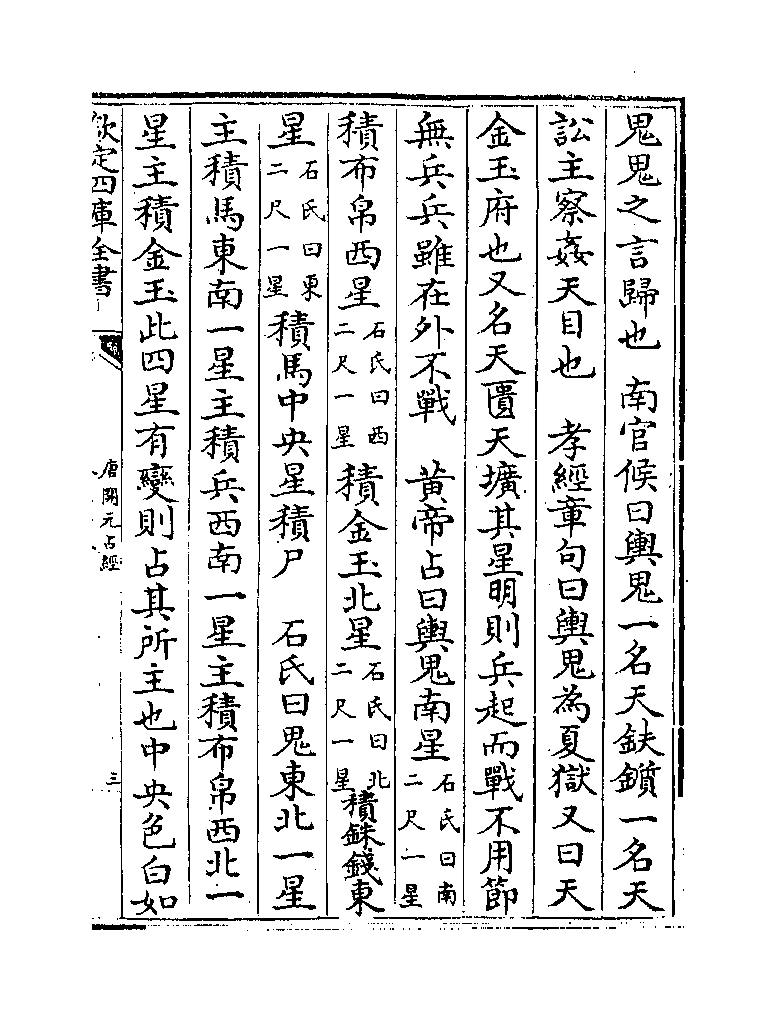 鬼鬼之言歸也　南官候曰輿鬼一名天鈇鑕一名天
訟主察姦天目也　孝經章句曰輿鬼為夏獄又曰天
金玉府也又名天匱天壙其星明則兵起而戰不用節
無兵兵雖在外不戰　黄帝占曰輿鬼南星石氏曰南二尺一星
積布帛西星石氏曰西二尺一星積金玉北星石氏曰北二尺一星積銖錢東
星石氏曰東二尺一星積馬中央星積尸　石氏曰鬼東北一星
主積馬東南一星主積兵西南一星主積布帛西北一
星主積金玉此四星有變則占其所主也中央色白如
欽定四庫全書
唐開元占經
三